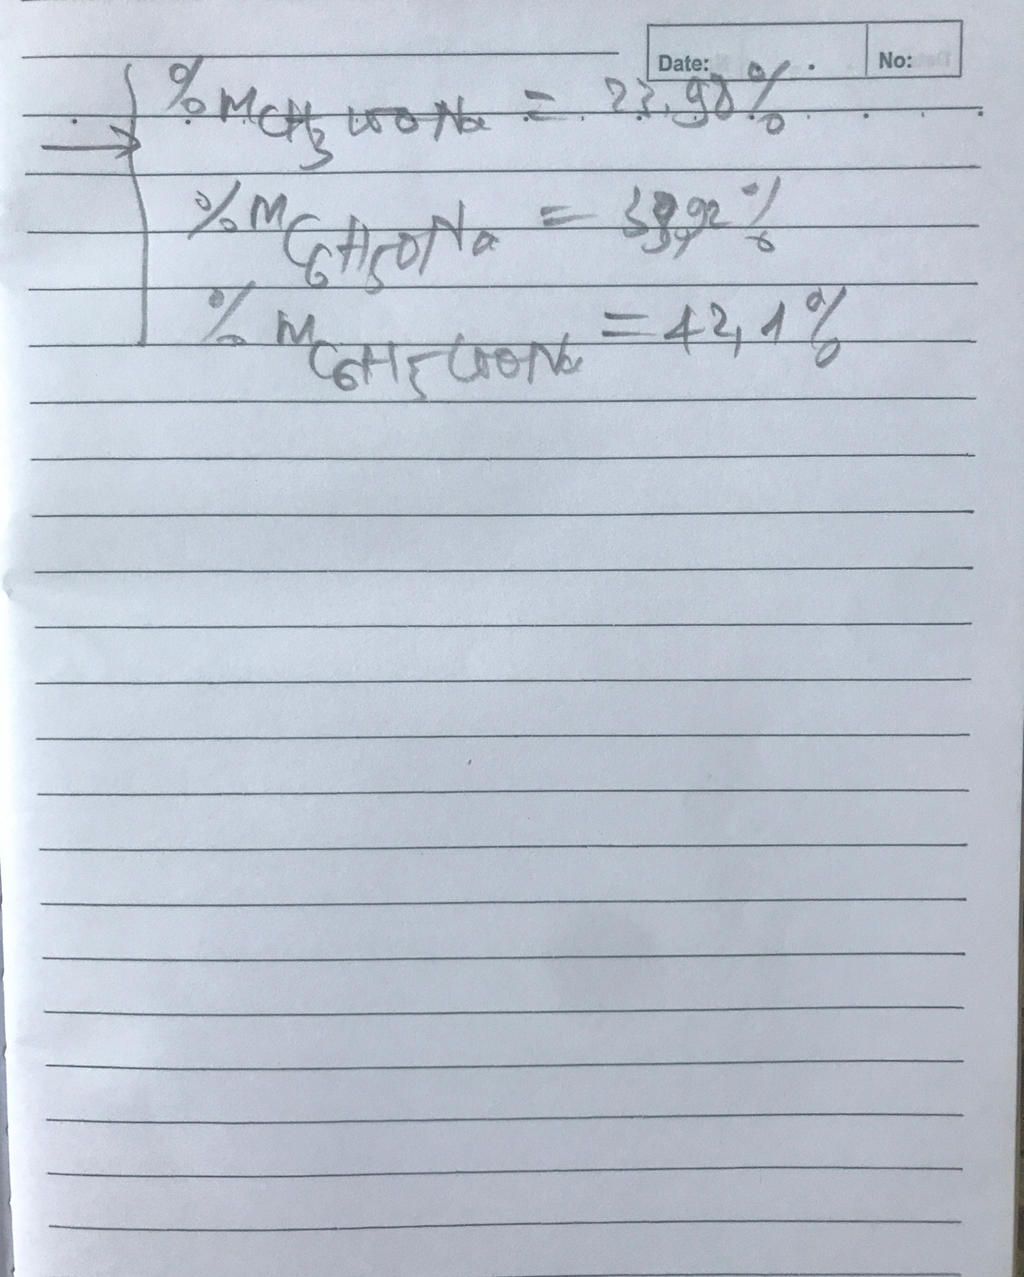 Date: No:
%mCH₃COONa = 23,98%
→ %mC₆H₅ONa = 33,92%
%mC₆H₅COONa = 42,1%